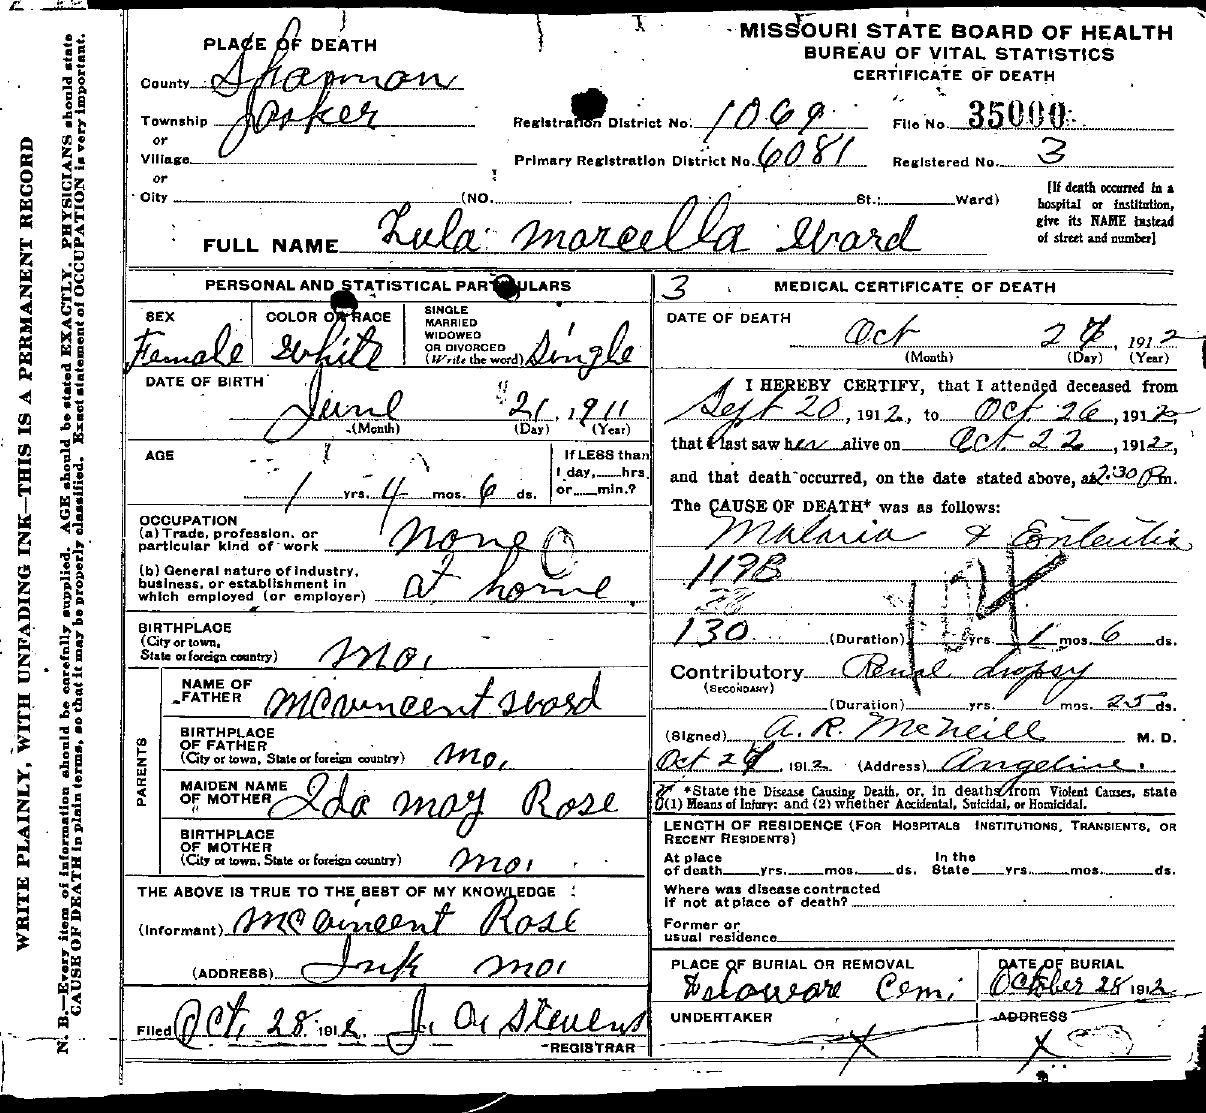 WRITE PLAINLY, WITH UNFADING INK—THIS IS A PERMANENT RECORD
N. B.—Every item of information should be carefully supplied. AGE should be stated EXACTLY. PHYSICIANS should state
CAUSE OF DEATH in plain terms, so that it may be properly classified. Exact statement of OCCUPATION is very important.
MISSOURI STATE BOARD OF HEALTH
BUREAU OF VITAL STATISTICS
CERTIFICATE OF DEATH
PLACE OF DEATH
County Shannon
Township Jasker
or
Village
or
City (NO. St.; Ward)
Registration District No. 1069
File No. 35000
Primary Registration District No. 6081
Registered No. 3
[If death occurred in a
hospital or institution,
give its NAME instead
of street and number]
FULL NAME Lula Marcella Ward
PERSONAL AND STATISTICAL PARTICULARS
SEX
Female
COLOR OR RACE
White
SINGLE
MARRIED
WIDOWED
OR DIVORCED
(Write the word) Single
DATE OF BIRTH
June 21, 1911
(Month) (Day) (Year)
AGE
1 yrs. 4 mos. 6 ds.
If LESS than
1 day, hrs.
or min.?
OCCUPATION
(a) Trade, profession, or
particular kind of work None
(b) General nature of industry,
business, or establishment in
which employed (or employer) at home
BIRTHPLACE
(City or town,
State or foreign country) Mo.
PARENTS
NAME OF
FATHER McVincent Ward
BIRTHPLACE
OF FATHER
(City or town, State or foreign country) Mo.
MAIDEN NAME
OF MOTHER Ida May Rose
BIRTHPLACE
OF MOTHER
(City or town, State or foreign country) Mo.
THE ABOVE IS TRUE TO THE BEST OF MY KNOWLEDGE
(Informant) McVincent Rose
(ADDRESS) Ink Mo.
Filed Oct. 28 1912 J. A. Stevens
REGISTRAR
3 MEDICAL CERTIFICATE OF DEATH
DATE OF DEATH
Oct , 1912
(Month) (Day) (Year)
I HEREBY CERTIFY, that I attended deceased from
Sept 20, 1912, to Oct. 26, 1912,
that I last saw her alive on Oct. 22, 1912,
and that death occurred, on the date stated above, at 2:30 P m.
The CAUSE OF DEATH* was as follows:
Malaria & Enteritis
119B
104
130 (Duration) yrs. 1 mos. 6 ds.
Contributory Renal dropsy
(SECONDARY)
(Duration) yrs. mos. 25 ds.
(Signed) A. R. McNeill M. D.
Oct , 1912 (Address) Angeline.
*State the Disease Causing Death, or, in deaths from Violent Causes, state
(1) Means of Injury; and (2) whether Accidental, Suicidal, or Homicidal.
LENGTH OF RESIDENCE (FOR HOSPITALS INSTITUTIONS, TRANSIENTS, OR
RECENT RESIDENTS)
At place
of death yrs. mos. ds.
In the
State yrs. mos. ds.
Where was disease contracted
if not at place of death?
Former or
usual residence
PLACE OF BURIAL OR REMOVAL
Delaware Cem.
DATE OF BURIAL
October 28 1912
UNDERTAKER
X
ADDRESS
X